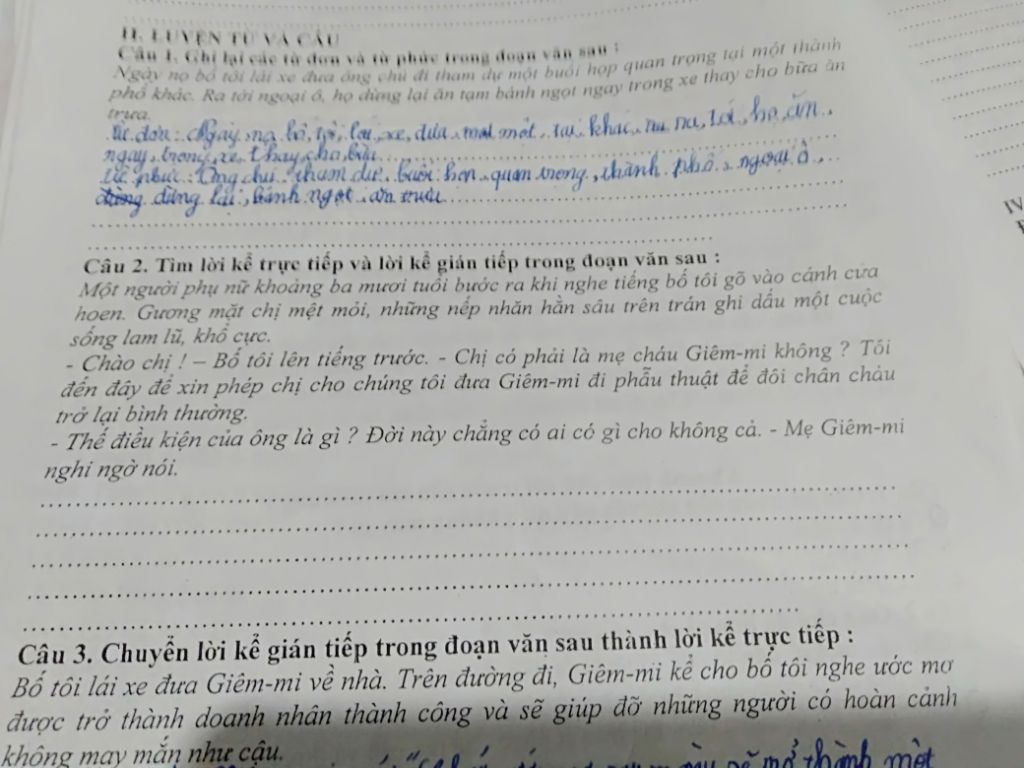 II. LUYỆN TỪ VÀ CÂU
Câu 1. Ghi lại các từ đơn và từ phức trong đoạn văn sau :
Ngày nọ bố tôi lái xe đưa ông chủ đi tham dự một buổi họp quan trọng tại một thành
phố khác. Ra tới ngoại ô, họ dừng lại ăn tạm bánh ngọt ngay trong xe thay cho bữa ăn
trưa.
Từ đơn : Ngày, nọ, bố, tôi, lái, xe, đưa, một, tại, khác, ra, tới, họ, ăn,
ngay, trong, xe, thay, cho, bữa
Từ phức : Ông chủ, tham dự, buổi họp, quan trọng, thành phố, ngoại ô,
dừng lại, bánh ngọt, ăn trưa
Câu 2. Tìm lời kể trực tiếp và lời kể gián tiếp trong đoạn văn sau :
Một người phụ nữ khoảng ba mươi tuổi bước ra khi nghe tiếng bố tôi gõ vào cánh cửa
hoen. Gương mặt chị mệt mỏi, những nếp nhăn hằn sâu trên trán ghi dấu một cuộc
sống lam lũ, khổ cực.
- Chào chị ! – Bố tôi lên tiếng trước. - Chị có phải là mẹ cháu Giêm-mi không ? Tôi
đến đây để xin phép chị cho chúng tôi đưa Giêm-mi đi phẫu thuật để đôi chân cháu
trở lại bình thường.
- Thế điều kiện của ông là gì ? Đời này chẳng có ai có gì cho không cả. - Mẹ Giêm-mi
nghi ngờ nói.
Câu 3. Chuyển lời kể gián tiếp trong đoạn văn sau thành lời kể trực tiếp :
Bố tôi lái xe đưa Giêm-mi về nhà. Trên đường đi, Giêm-mi kể cho bố tôi nghe ước mơ
được trở thành doanh nhân thành công và sẽ giúp đỡ những người có hoàn cảnh
không may mắn như cậu.
thành một
IV